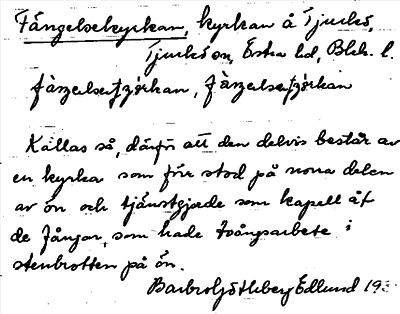 Fängelsekyrkan, kyrkan å Tjurkö,
Tjurkö sn, Östra hd, Blek. l.
Kallas så, därför att den delvis består av
en kyrka som förr stod på norra delen
av ön och tjänstgjorde som kapell åt
de fångar, som hade tvångsarbete i
stenbrotten på ön.
Barbro Götlberg Edlund 193